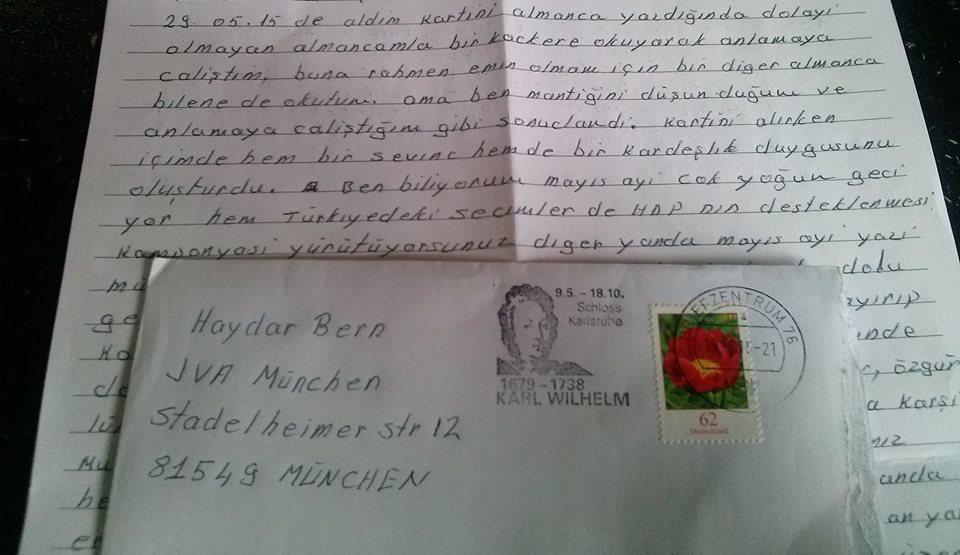 29. 05.15 de aldim kartini almanca yazdiğinda dolayi
olmayan almancamla birkackere okuyarak anlamaya
caliştim, buna rahmen emin olmam için bir diger almanca
bilene de okutum. ama ben mantiğini düşünduğum ve
anlamaya caliştiğim gibi sonuclandi. Kartini alirken
içimde hem bir sevinc hemde bir kardeşlik duygusunu
oluşturdu. Ben biliyorum mayis ayi cok yoğun geci
yor hem Türkiyedeki secimler de HDP nin desteklenmesi
kampanyasi yürütüyorsunuz diger yanda mayis ayi yazi
dolu
ayirip
inde
özgür
a karşi
miz
anda
an ya
Haydar Bern
JVA München
Stadelheimer str 12
81549 MÜNCHEN
9.5. – 18.10.
Schloss
Karlsruhe
1679 – 1738
KARL WILHELM
EFZENTRUM 76
5-21
62
Deutschland